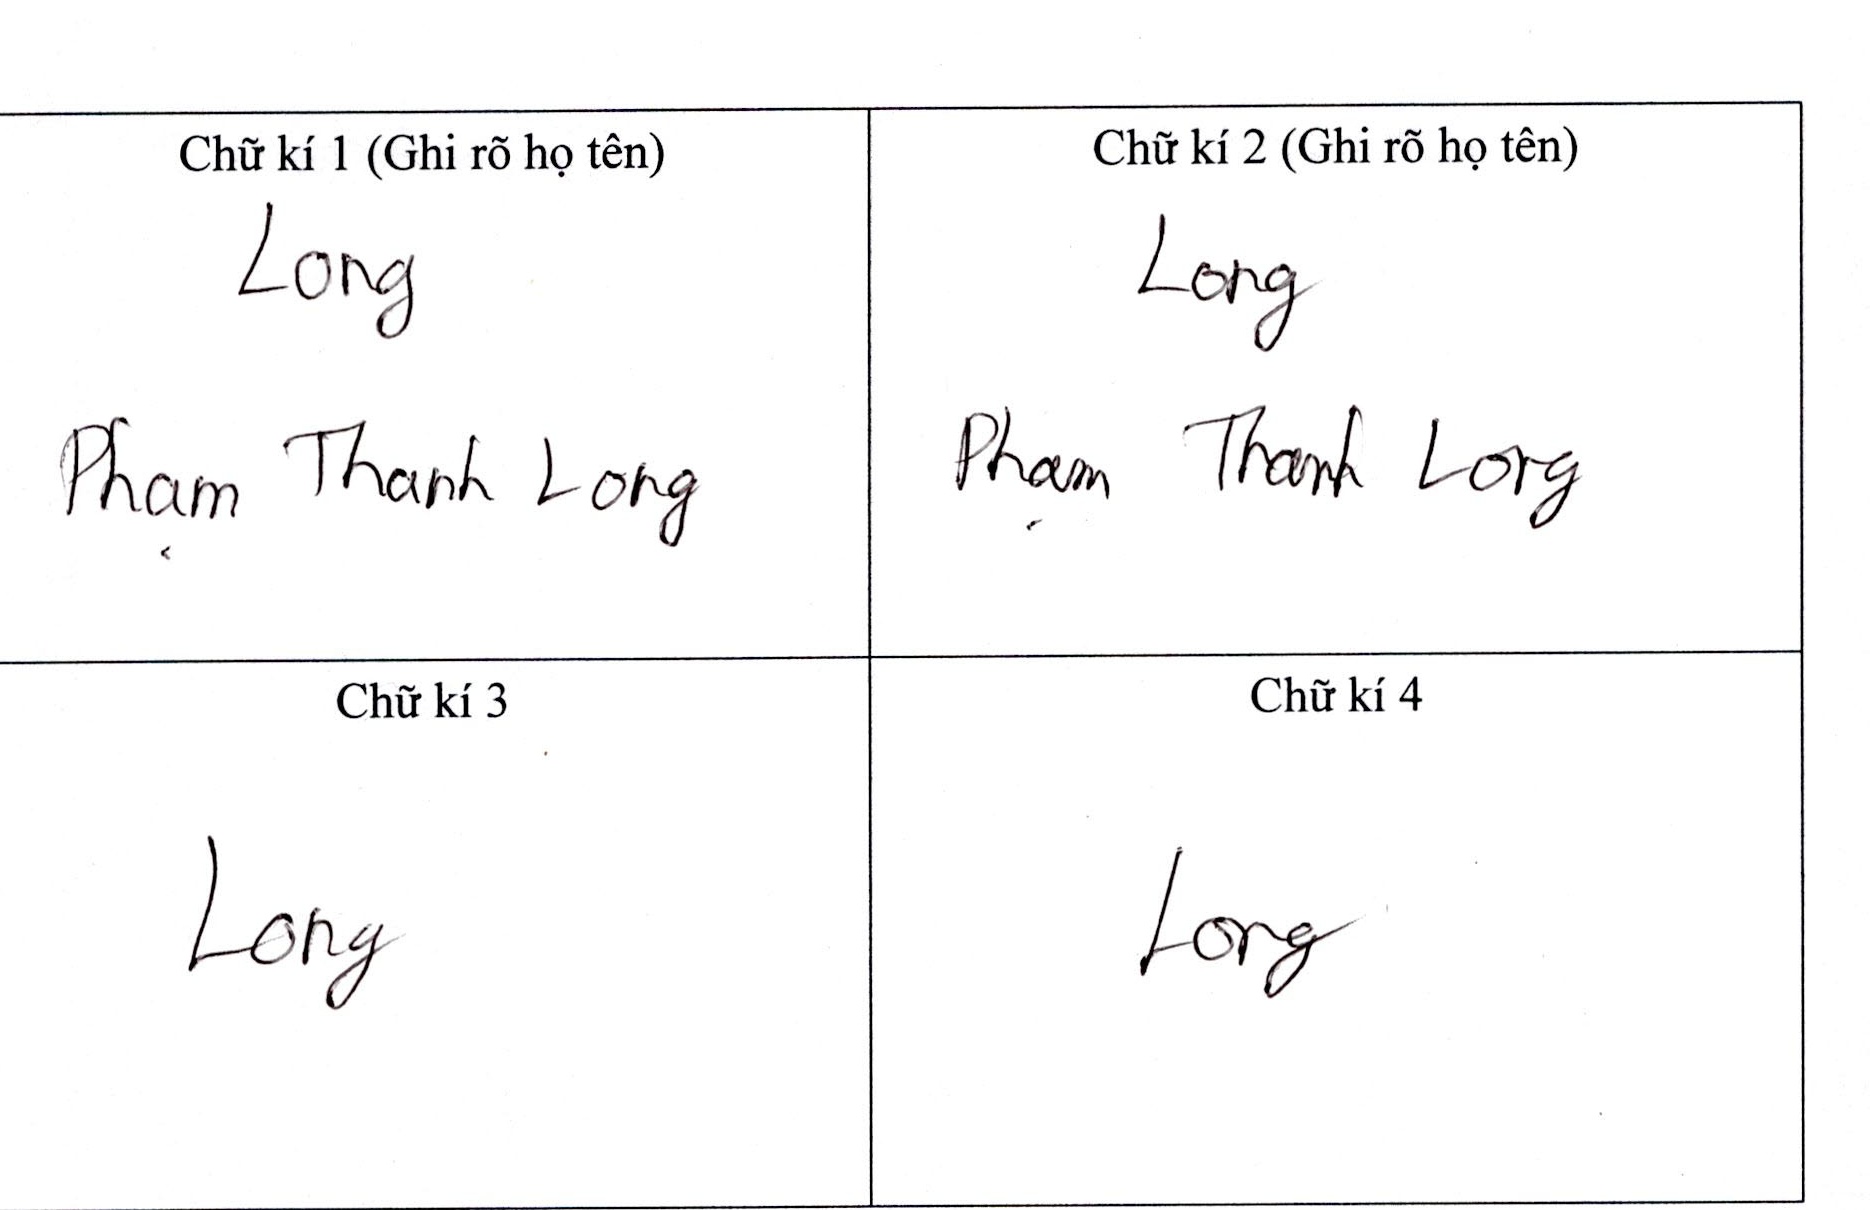 Chữ kí 1 (Ghi rõ họ tên)
Long
Phạm Thanh Long
Chữ kí 2 (Ghi rõ họ tên)
Long
Phạm Thanh Long
Chữ kí 3
Long
Chữ kí 4
Long